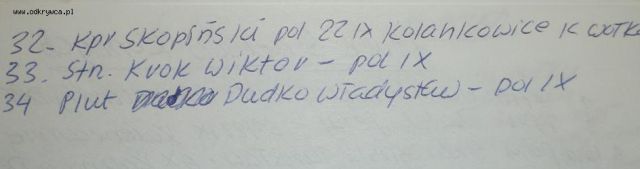 www.odkrywca.pl
32. kpr Skopiński pol 22 IX Kolankowice k
33. Stn. Krok Wiktor - pol IX
34 Plut Dudko Władysław - pol IX